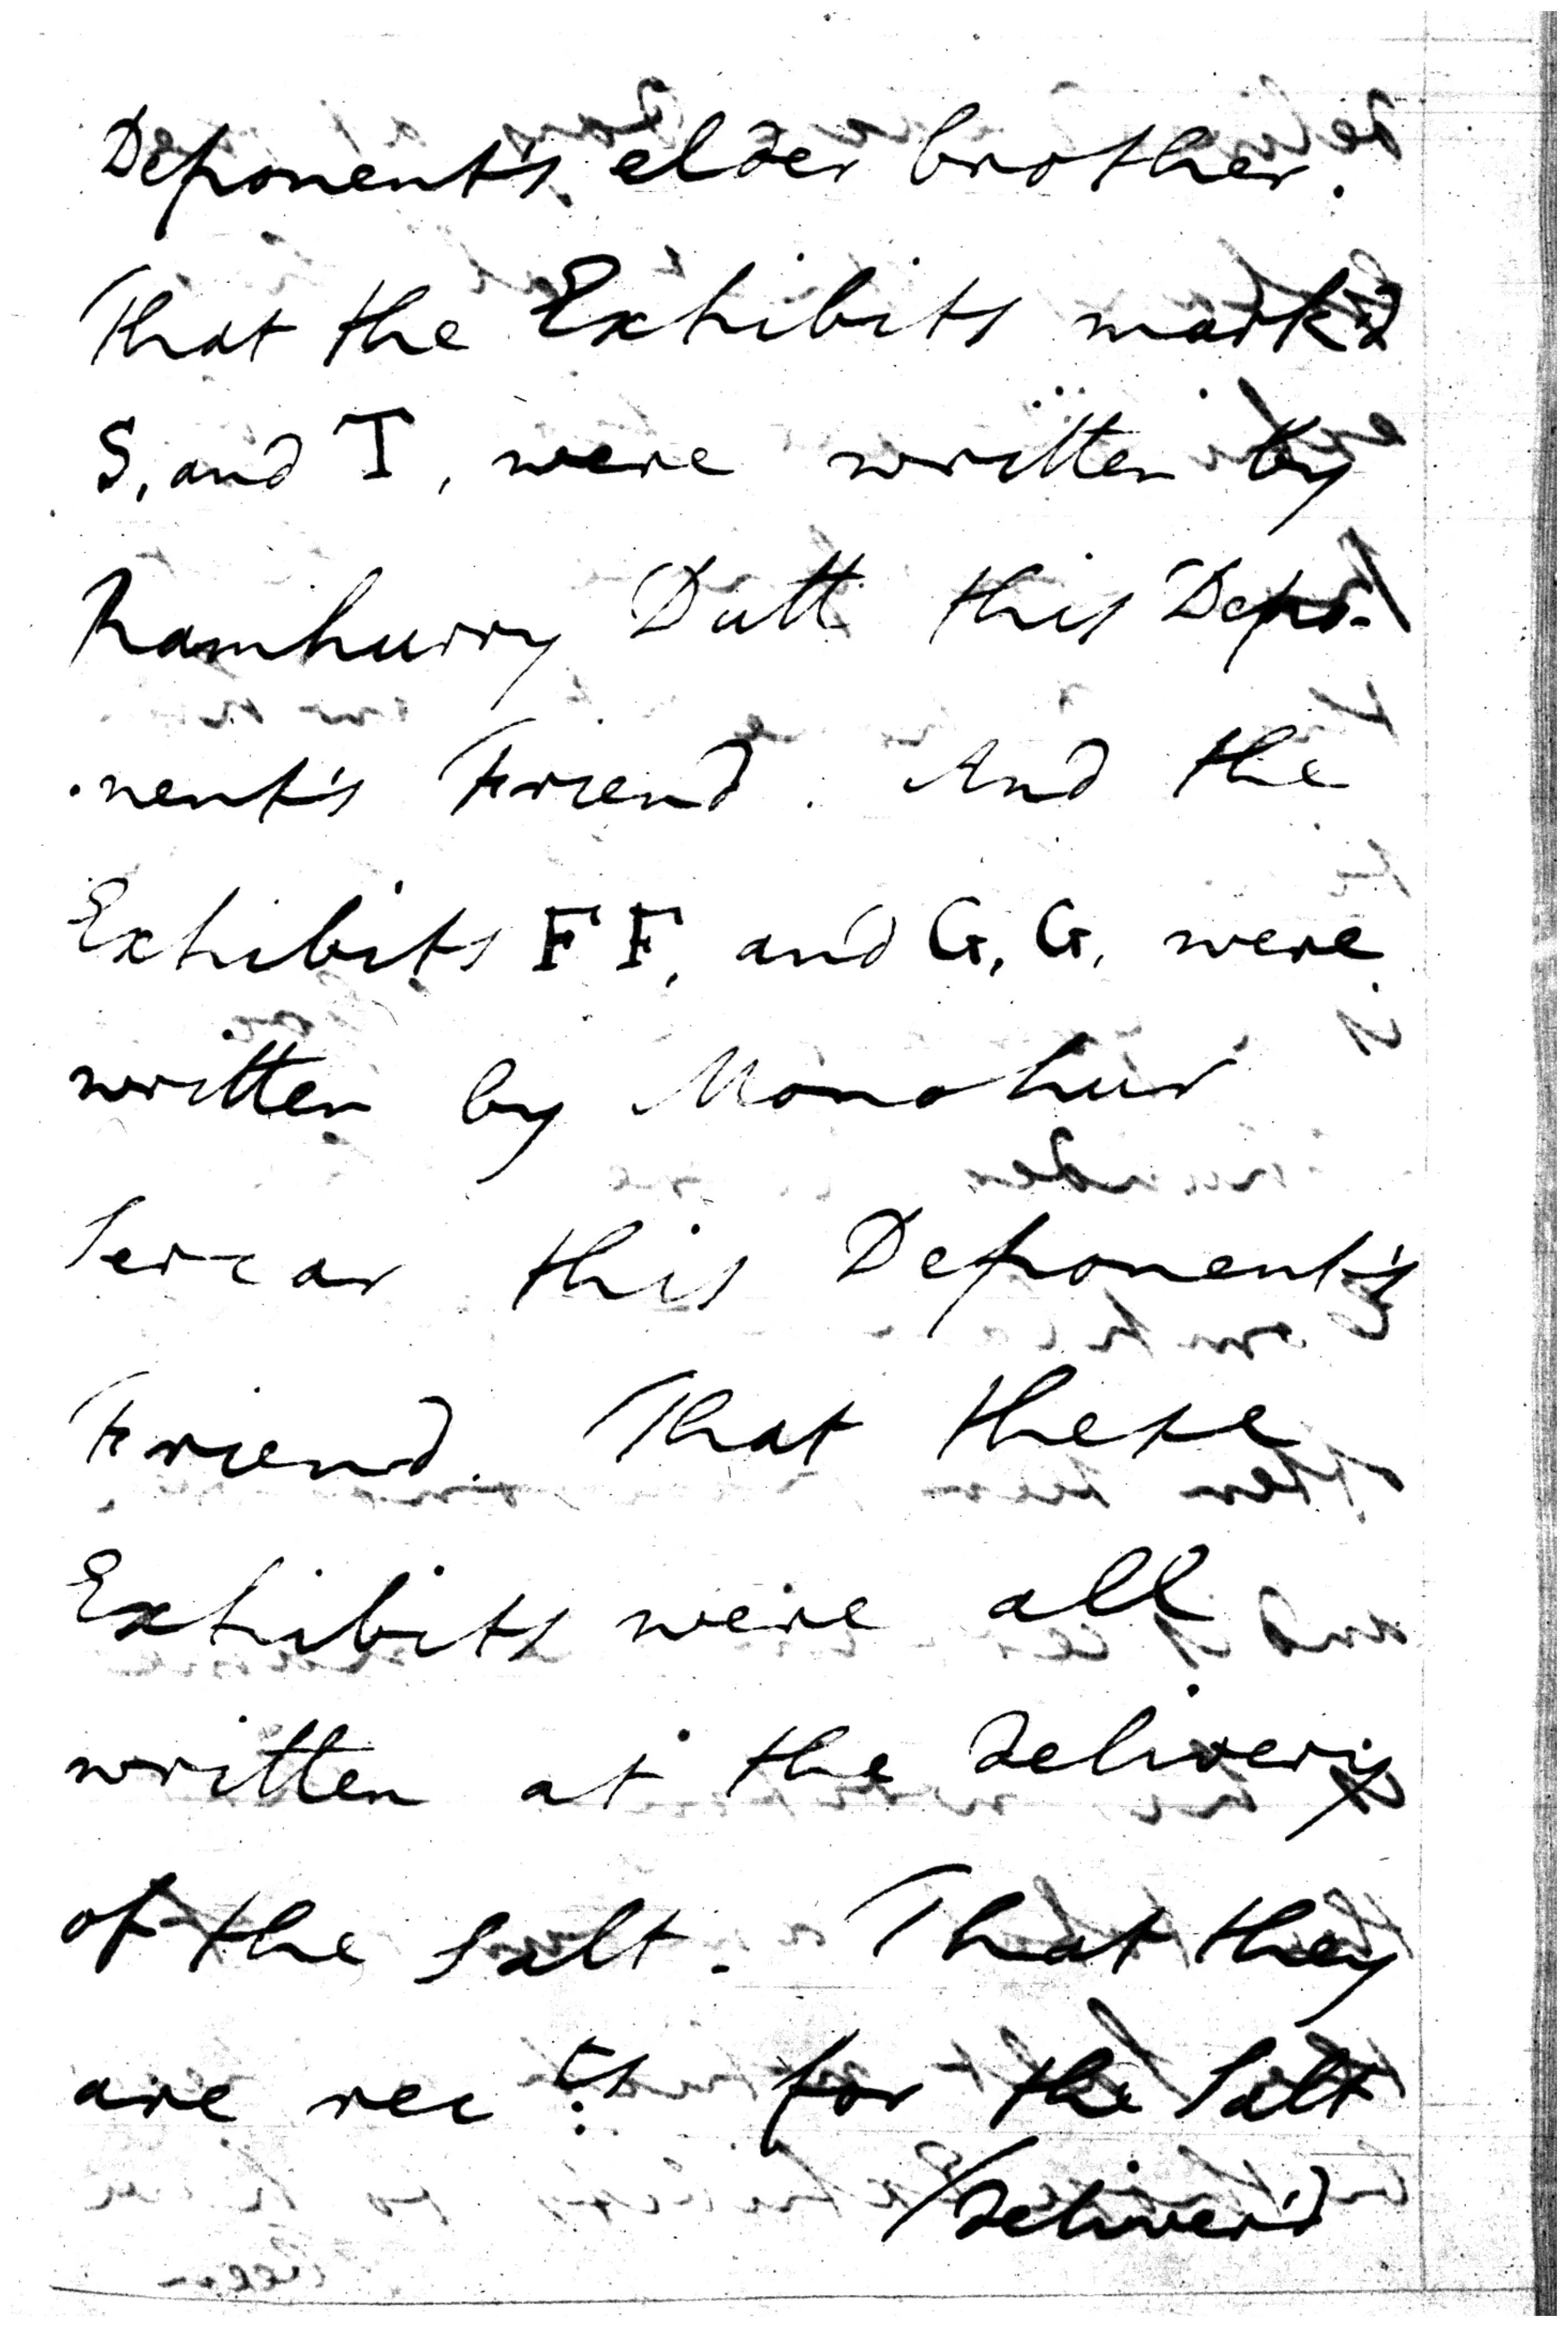 Deponent's elder brother.
That the Exhibits mark'd
S, and T, were written by
Ramhurry Dutt this Depo-
-nent's Friend. And the
Exhibits F F, and G, G, were
written by Monohur
Sercar this Deponent's
Friend. That these
Exhibits were all
written at the delivery
of the Salt. That they
are rec:ts for the Salt
/deliver'd